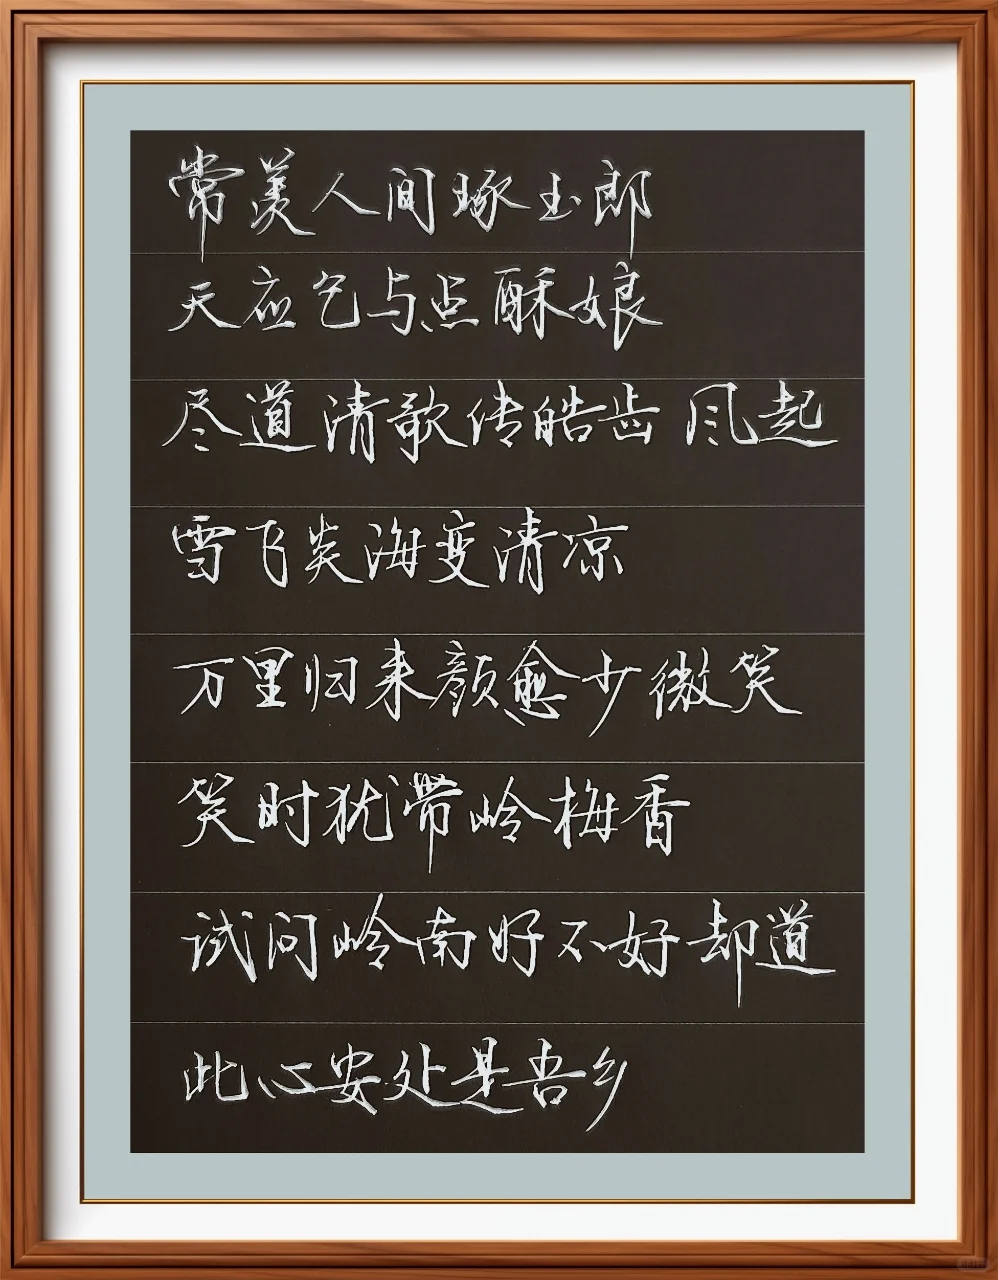 常羡人间琢玉郎
天应乞与点酥娘
尽道清歌传皓齿 风起
雪飞炎海变清凉
万里归来颜愈少微笑
笑时犹带岭梅香
试问岭南好不好却道
此心安处是吾乡